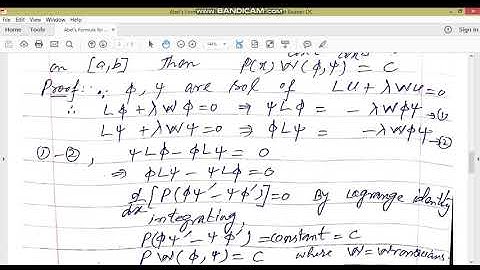 www.BANDICAM.com
Abel's Formula for ...
on [a,b] Then P(x) W(φ,ψ) = C
Proof: ∵ φ, ψ are sol of Lu + λwu = 0
∴ Lφ + λwφ = 0 ⇒ ψLφ = - λwφψ → ①
Lψ + λwψ = 0 ⇒ φLψ = - λwφψ → ②
① - ②, ψLφ - φLψ = 0
⇒ φLψ - ψLφ = 0
d/dx [P(φψ' - ψφ')] = 0 By Lagrange identity
integrating,
P(φψ' - ψφ') = constant = C
P W(φ,ψ) = C where W = wronskian